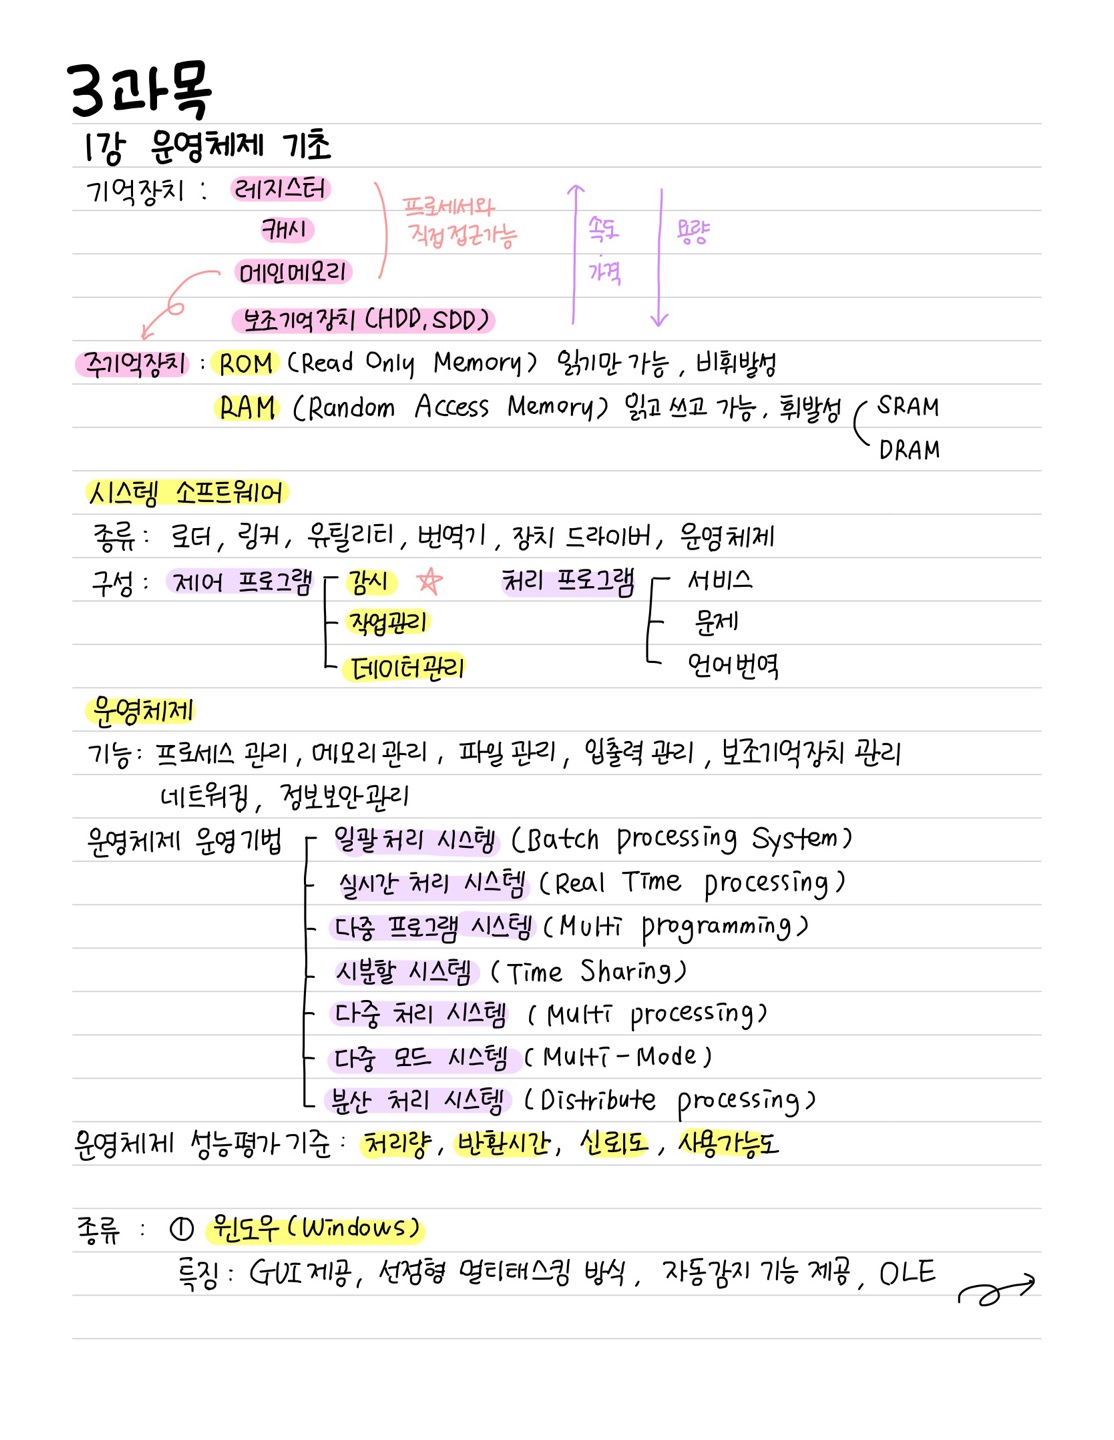 3과목
1강 운영체제 기초
기억장치 : 레지스터
캐시
메인메모리
보조기억장치 (HDD, SDD)
프로세서와
직접 접근가능
속도
·
가격
용량
주기억장치 : ROM (Read Only Memory) 읽기만 가능, 비휘발성
RAM (Random Access Memory) 읽고 쓰고 가능. 휘발성 SRAM
DRAM
시스템 소프트웨어
종류 : 로더, 링커, 유틸리티, 번역기, 장치 드라이버, 운영체제
구성 : 제어 프로그램 감시 ☆ 처리 프로그램 서비스
작업관리 문제
데이터관리 언어번역
운영체제
기능 : 프로세스 관리, 메모리 관리, 파일 관리, 입출력 관리, 보조기억장치 관리
네트워킹, 정보보안관리
운영체제 운영기법 일괄 처리 시스템 (Batch processing System)
실시간 처리 시스템 (Real Time processing)
다중 프로그램 시스템 (Multi programming)
시분할 시스템 (Time Sharing)
다중 처리 시스템 (Multi processing)
다중 모드 시스템 (Multi-Mode)
분산 처리 시스템 (Distribute processing)
운영체제 성능평가 기준 : 처리량, 반환시간, 신뢰도, 사용가능도
종류 : ① 윈도우 (Windows)
특징 : GUI 제공, 선점형 멀티태스킹 방식, 자동감지 기능 제공, OLE